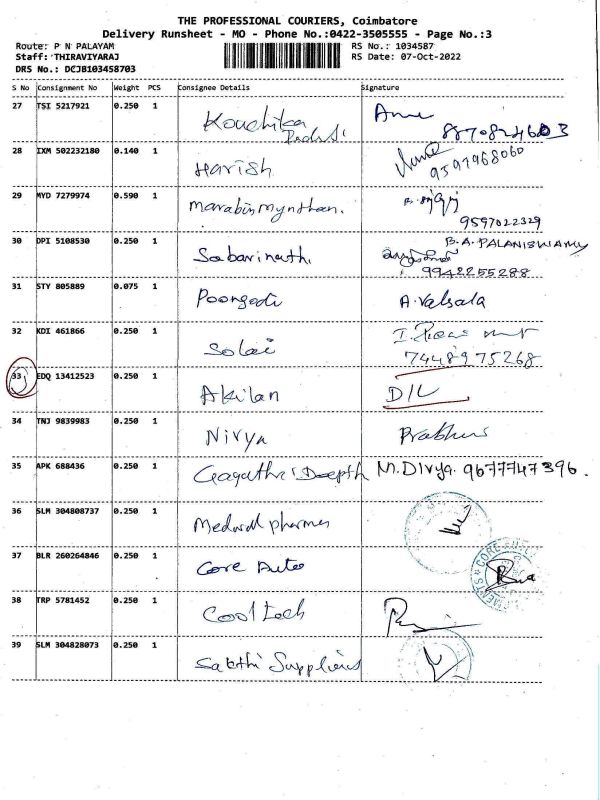 THE PROFESSIONAL COURIERS, Coimbatore
Delivery Runsheet - MO - Phone No.:0422-3505555 - Page No.:3
Route: P N PALAYAM RS No.: 1034587
Staff: THIRAVIYARAJ RS Date: 07-Oct-2022
DRS No.: DCJB103458703
S No Consignment No Weight PCS Consignee Details Signature
27 TSI 5217921 0.250 1
28 IXM 502232180 0.140 1 Harish 9597968060
29 MYD 7279974 0.590 1
9597022329
30 DPI 5108530 0.250 1 Sabarinath B.A.PALANISWAMY
9942255288
31 STY 805889 0.075 1 Poongodi A.Valsala
32 KDI 461866 0.250 1 Solai
7448975268
33 EDQ 13412523 0.250 1 Akilan D/L
34 TNJ 9839983 0.250 1 Nivya
35 APK 688436 0.250 1 M.Divya. 9677747396.
36 SLM 304808737 0.250 1
37 BLR 260264846 0.250 1 Core
38 TRP 5781452 0.250 1 Cool tech
39 SLM 304828073 0.250 1 Sakthi Suppliers